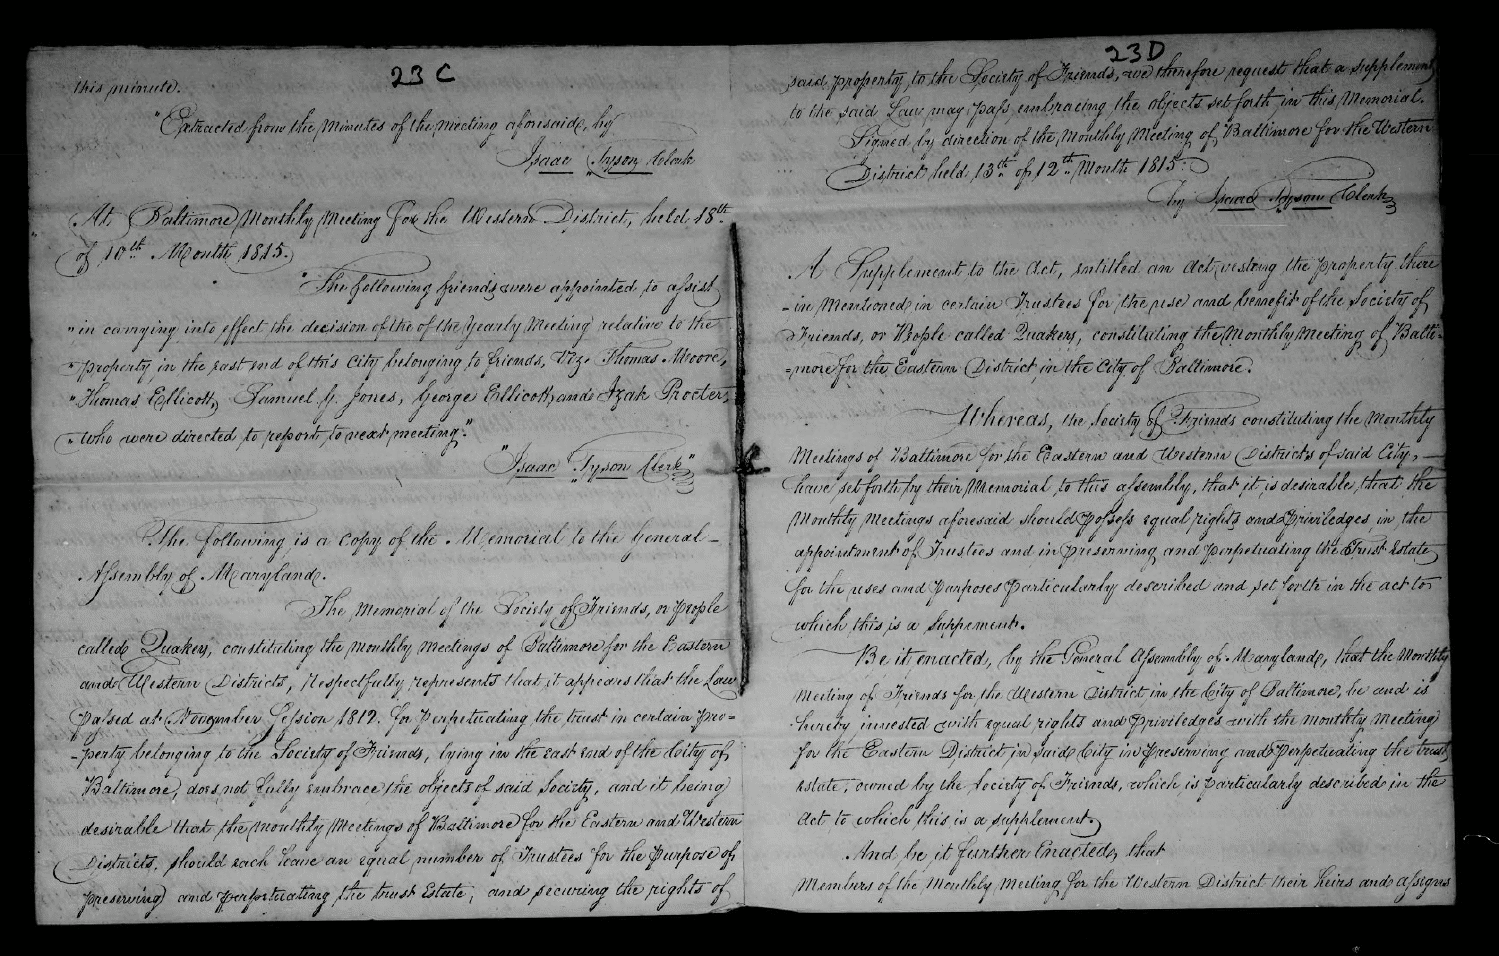 23 C
this minute.
"Extracted from the Minutes of the meeting aforesaid, by
Isaac Tyson Clerk
At Baltimore Monthly Meeting for the Western District, held 18th
of 10th Month 1815.
"The following friends were appointed to assist
" in carrying into effect the decision of the of the Yearly Meeting relative to the
" property in the east end of this City belonging to friends, Viz. Thomas Moore,
" Thomas Ellicott, Samuel G. Jones, George Ellicott and Izak Procter,
" who were directed to report to next meeting."
"Isaac Tyson Clerk"
The following is a copy of the Memorial to the General
Assembly of Maryland.
The Memorial of the Society of Friends, or people
called Quakers, constituting the monthly meetings of Baltimore for the Eastern
and Western Districts, Respectfully represents that it appears that the Law
passed at November Session 1812. for perpetuating the trust in certain pro=
=perty belonging to the Society of Friends, lying in the east end of the City of
Baltimore, does not fully embrace the objects of said Society, and it being
desirable that the Monthly Meetings of Baltimore for the Eastern and Western
Districts, should each have an equal number of Trustees for the purpose of
preserving and perpetuating the trust Estate, and securing the rights of
23 D
said property, to the Society of Friends, we therefore request that a supplement
to the said Law may pass, embracing the objects set forth in this Memorial.
Signed by direction of the Monthly Meeting of Baltimore for the Western
District held 13th of 12th Month 1815.
by Isaac Tyson Clerk
A Supplement to the Act, entitled an Act vesting the property there
=in Mentioned in certain Trustees for the use and benefit of the Society of
Friends, or People called Quakers, constituting the Monthly Meeting of Balti=
=more for the Eastern District, in the City of Baltimore.
Whereas, the Society of Friends constituting the Monthly
Meetings of Baltimore for the Eastern and Western Districts of said City,
have set forth by their Memorial to this assembly, that it is desirable, that the
Monthly Meetings aforesaid should possess equal rights and Priviledges in the
appointment of Trustees and in preserving and perpetuating the Trust Estate
for the uses and purposes particularly described and set forth in the act to
which this is a Supplement.
Be it enacted, by the General Assembly of Maryland, that the Monthly
Meeting of Friends for the Western District in the City of Baltimore, be and is
hereby invested with equal rights and priviledges with the monthly meeting
for the Eastern District in said City in preserving and perpetuating the trust
estate, owned by the Society of Friends, which is particularly described in the
Act to which this is a supplement.
And be it further Enacted, that
Members of the Monthly Meeting for the Western District their heirs and assigns